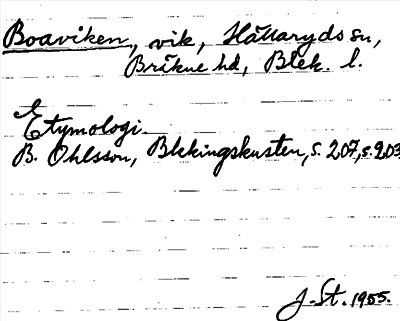 Boaviken, vik, Hällaryds sn,
Bräkne hd, Blek. l.
Etymologi.
B. Ohlsson, Blekingskusten, s. 207, s. 203
J. St. 1955.